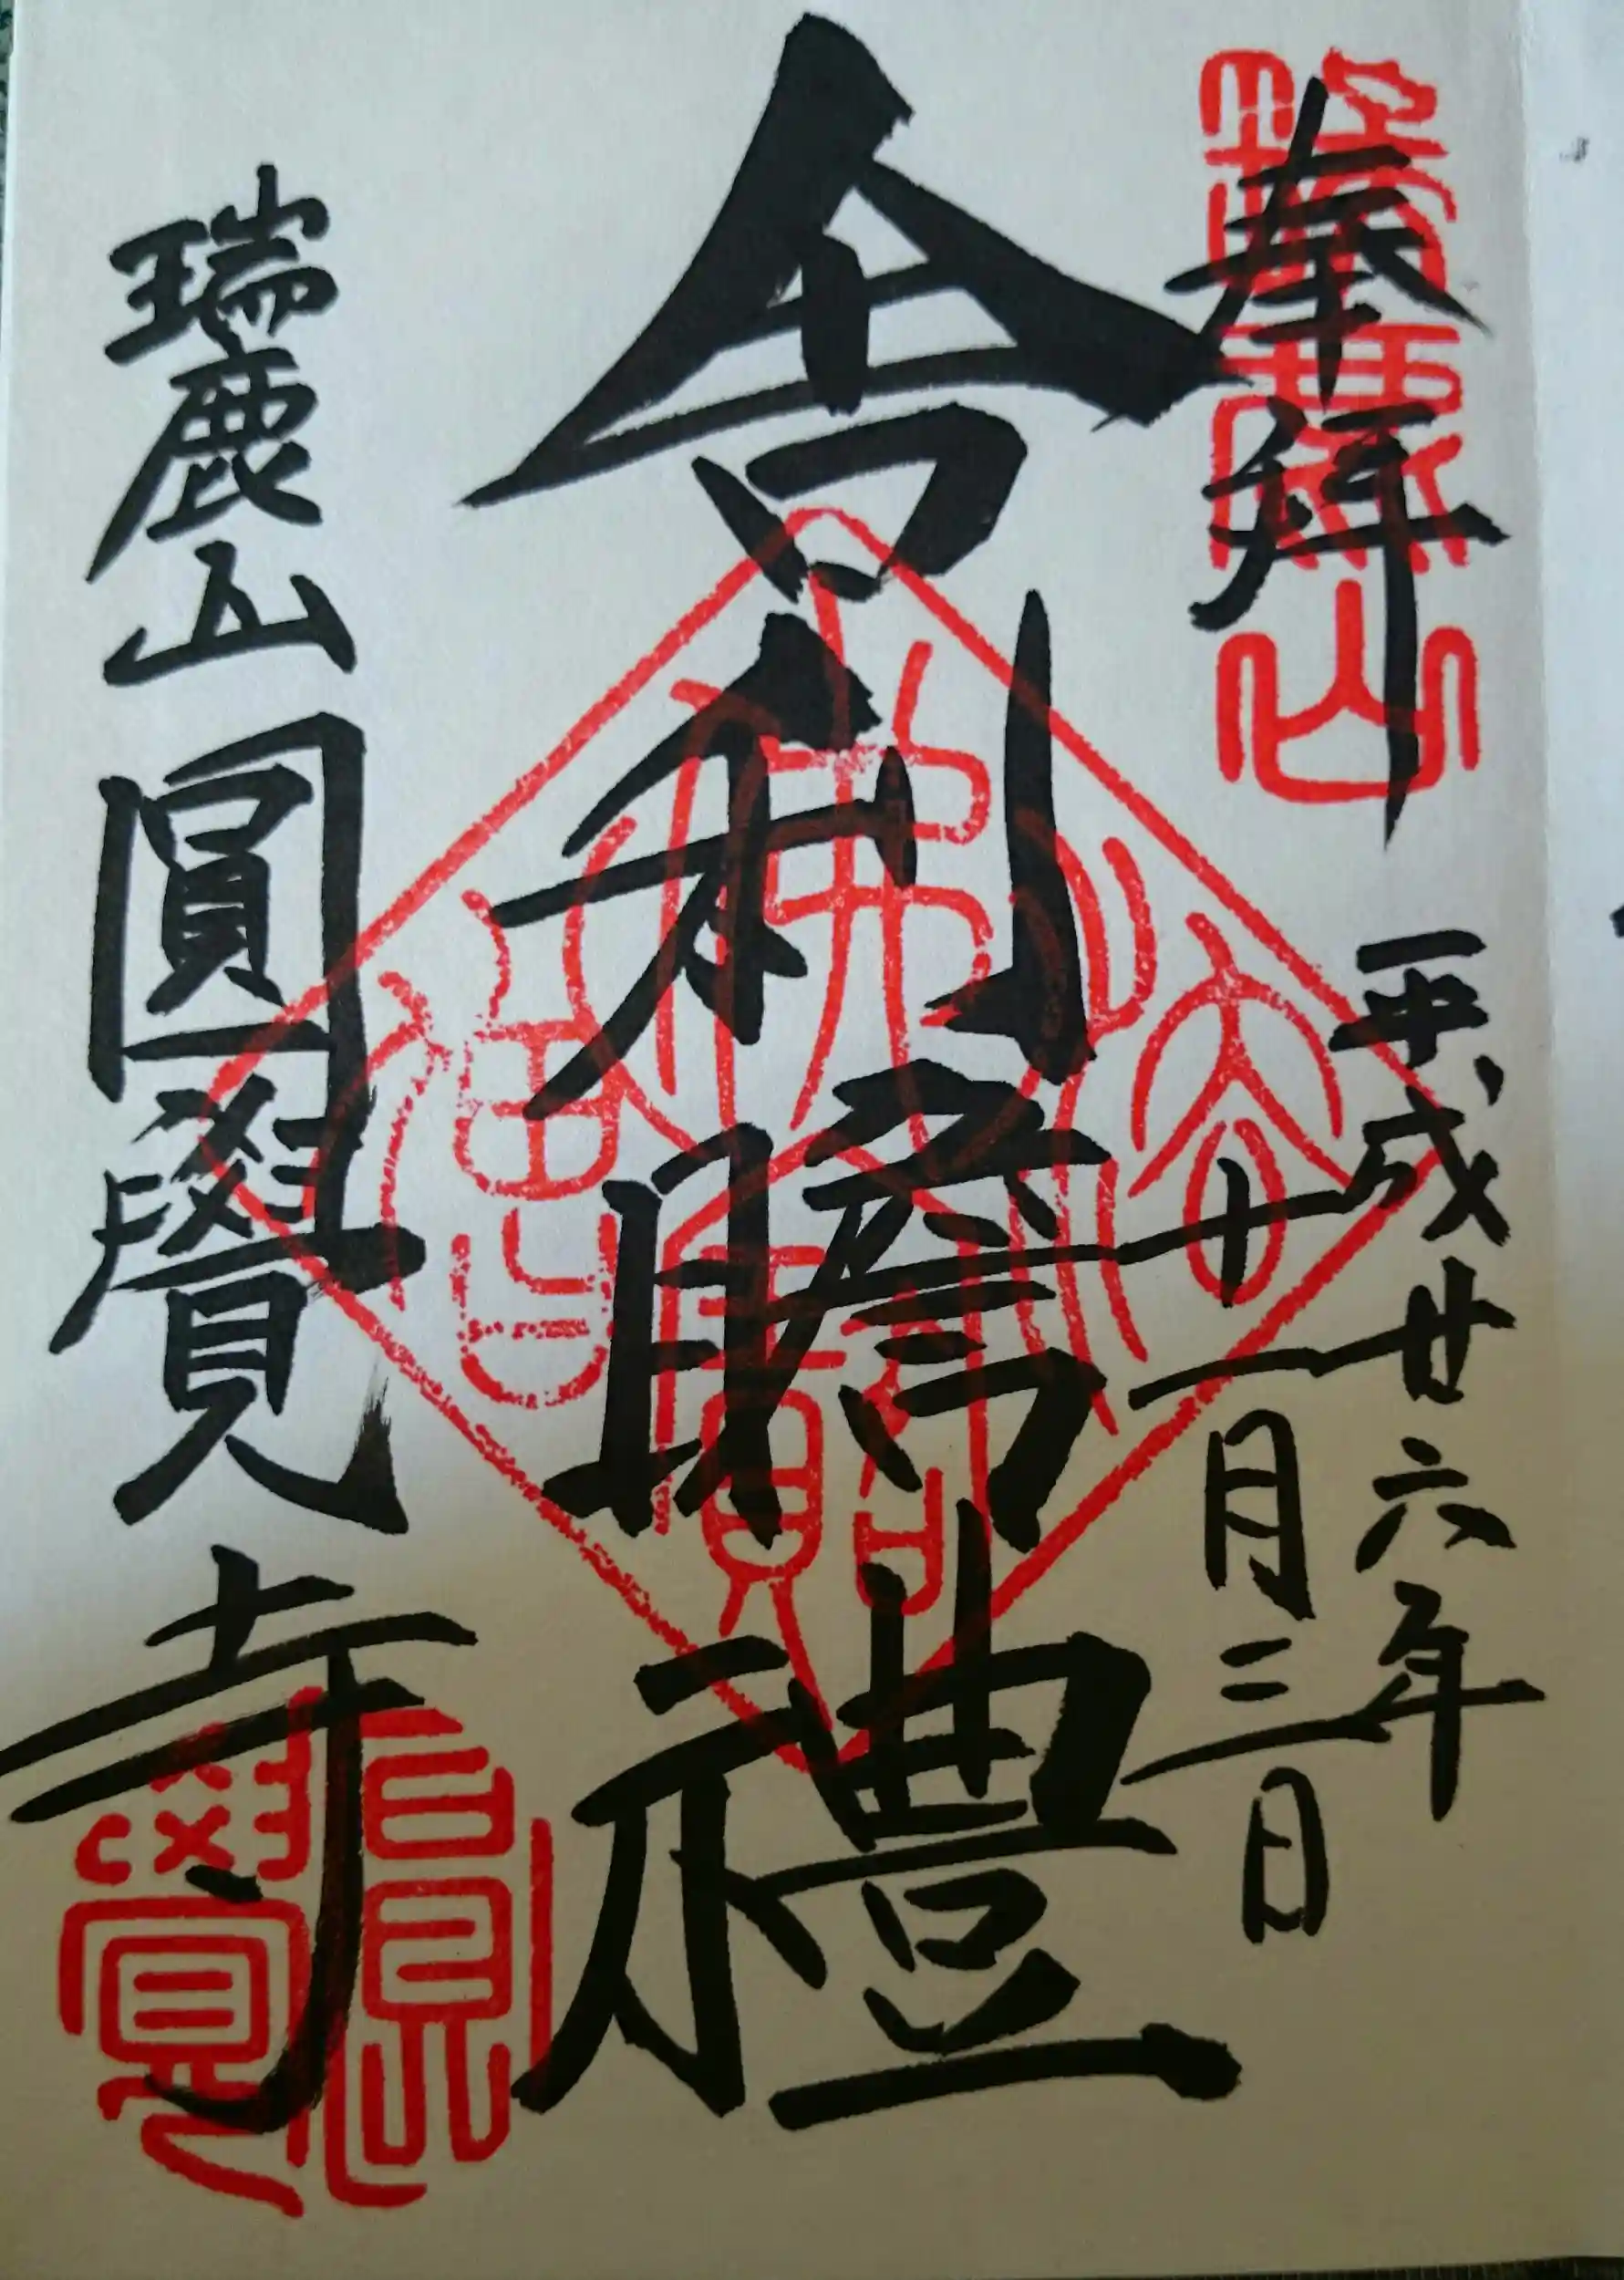 奉拝
平成廿六年
十一月三日
舎利瞻禮
瑞鹿山圓覺寺
瑞鹿山
佛法僧寶
圓覺